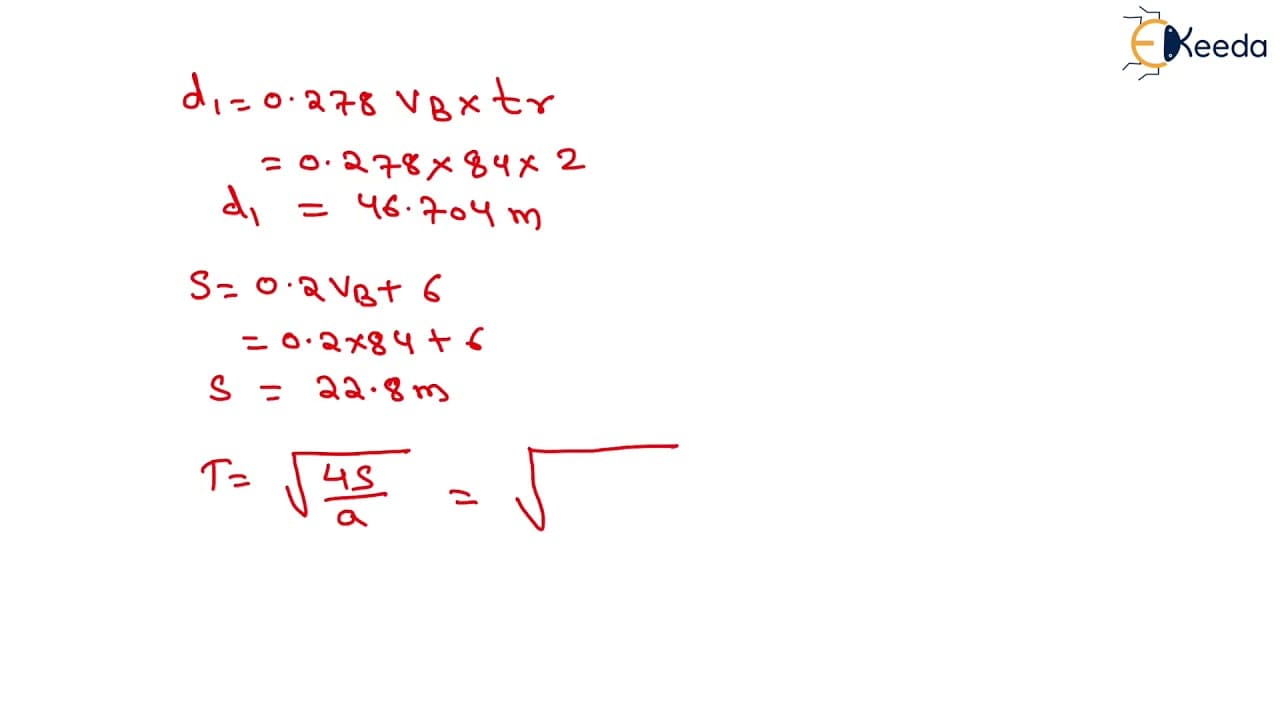 EKeeda
d₁ = 0.278 VB × tr
= 0.278 × 84 × 2
d₁ = 46.704 m
S = 0.2 VB + 6
= 0.2 × 84 + 6
S = 22.8 m
T = √(4S/a) = √